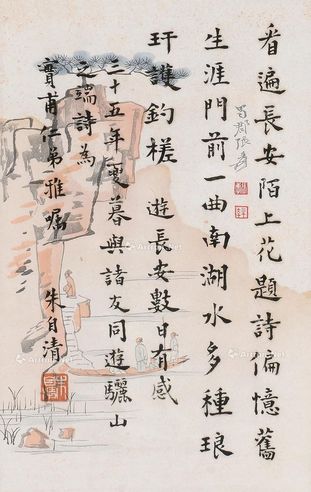 看遍長安陌上花題詩偏憶舊
生涯門前一曲南湖水多種琅
玕護釣槎 遊長安數日有感
三十五年夏暮與諸友同遊驪山
之端詩為
實甫仁弟雅囑 朱自清
蜀郡張爰